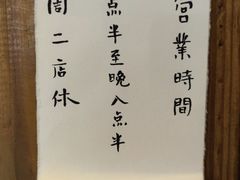 营業時間
点半至晚八点半
周二店休